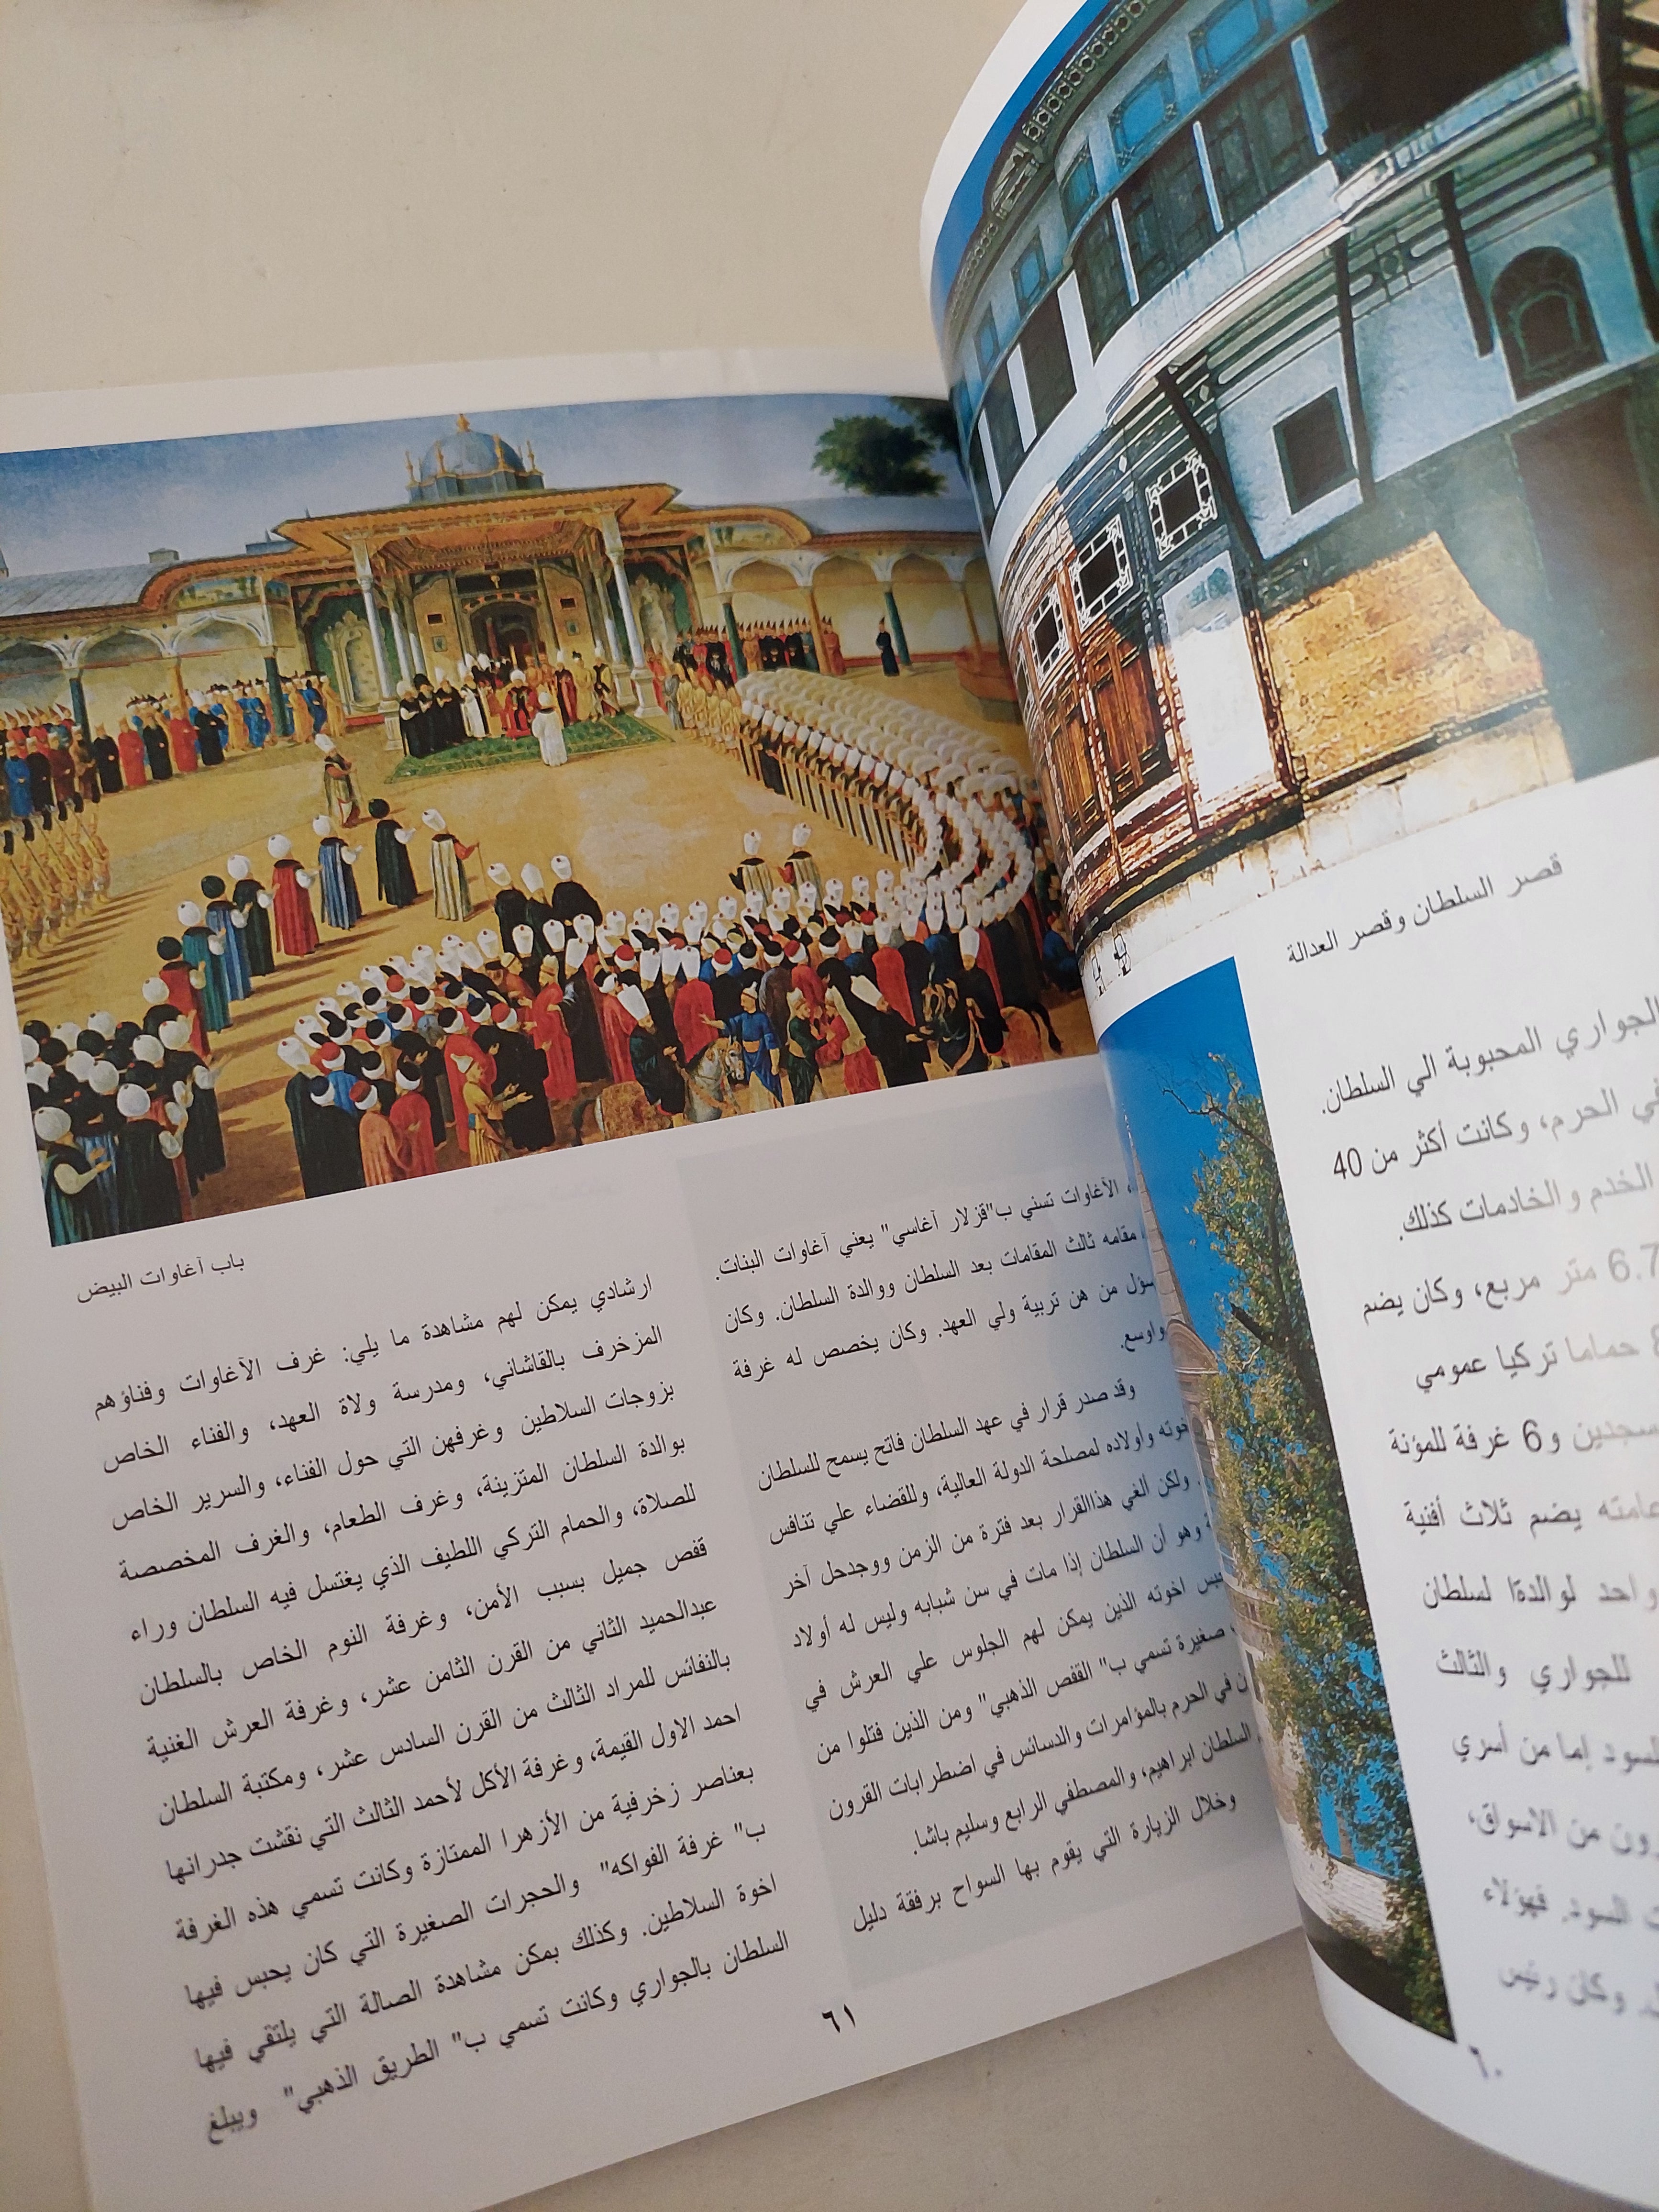 قصر السلطان وقصر العدالة
الجواري المحبوبة الي السلطان.
في الحرم، وكانت أكثر من 40
الخدم والخادمات كذلك.
6.7 متر مربع، وكان يضم
حماما تركيا عمومي
و6 غرفة للمؤنة
يضم ثلاث أفنية
واحد لوالدةا لسلطان
للجواري والثالث
السود إما من أسري
من الاسواق،
السود. فهؤلاء
وكان رئيس
٦٠
باب آغاوات البيض
، الآغاوات تسني ب"قزلار آغاسي" يعني آغاوات البنات.
مقامه ثالث المقامات بعد السلطان ووالدة السلطان. وكان
من هن تربية ولي العهد. وكان يخصص له غرفة
واوسع.
وقد صدر قرار في عهد السلطان فاتح يسمح للسلطان
وأولاده لمصلحة الدولة العالية، وللقضاء علي تنافس
ولكن ألغي هذاالقرار بعد فترة من الزمن ووجدحل آخر
وهو أن السلطان إذا مات في سن شبابه وليس له أولاد
اخوته الذين يمكن لهم الجلوس علي العرش في
صغيرة تسمي ب" القفص الذهبي" ومن الذين قتلوا من
في الحرم بالمؤامرات والدسائس في اضطرابات القرون
السلطان ابراهيم، والمصطفي الرابع وسليم باشا.
وخلال الزيارة التي يقوم بها السواح برفقة دليل
ارشادي يمكن لهم مشاهدة ما يلي: غرف الآغاوات وفناؤهم
المزخرف بالقاشاني، ومدرسة ولاة العهد، والفناء الخاص
بزوجات السلاطين وغرفهن التي حول الفناء، والسرير الخاص
بوالدة السلطان المتزينة، وغرف الطعام، والغرف المخصصة
للصلاة، والحمام التركي اللطيف الذي يغتسل فيه السلطان وراء
قفص جميل بسبب الأمن، وغرفة النوم الخاص بالسلطان
عبدالحميد الثاني من القرن الثامن عشر، وغرفة العرش الغنية
بالنفائس للمراد الثالث من القرن السادس عشر، ومكتبة السلطان
احمد الاول القيمة، وغرفة الأكل لأحمد الثالث التي نقشت جدرانها
بعناصر زخرفية من الأزهرا الممتازة وكانت تسمي هذه الغرفة
ب" غرفة الفواكه" والحجرات الصغيرة التي كان يحبس فيها
اخوة السلاطين. وكذلك بمكن مشاهدة الصالة التي يلتقي فيها
السلطان بالجواري وكانت تسمي ب" الطريق الذهبي" ويبلغ
٦١